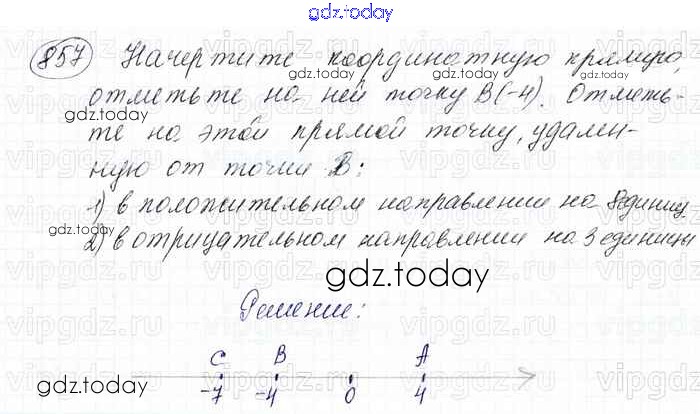 gdz.today
857 Начертите координатную прямую,
gdz.today gdz.today
отметьте на ней точку B(-4). Отметь-
gdz.today gdz.today
те на этой прямой точку, удален-
ную от точки B:
1) в положительном направлении на 8 единиц
gdz.today
2) в отрицательном направлении на 3 единицы
gdz.today
Решение:
C B A
gdz.today
-7 -4 0 4
gdz.today